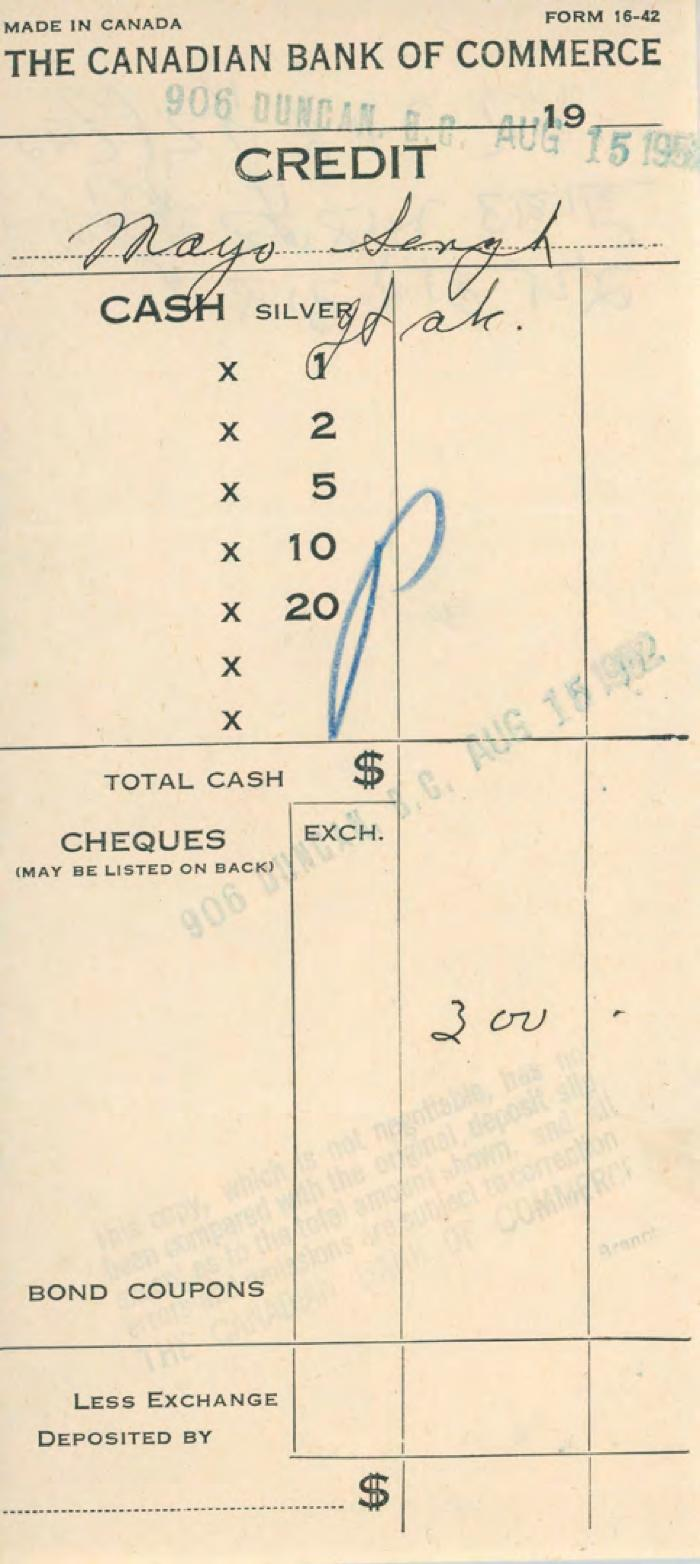 MADE IN CANADA FORM 16-42
THE CANADIAN BANK OF COMMERCE
906 DUNCAN, B.C. AUG 15 1952
19
CREDIT
Mayo Singh
CASH SILVER
x 1
x 2
x 5
x 10
x 20
x
x
TOTAL CASH $
906 DUNCAN B.C. AUG 15 1952
CHEQUES EXCH.
(MAY BE LISTED ON BACK)
300 -
This copy, which is not negotiable, has not
been compared with the original deposit slip
as to the total amount shown, and all
errors omissions are subject to correction
THE CANADIAN BANK OF COMMERCE
Branch
BOND COUPONS
LESS EXCHANGE
DEPOSITED BY
$